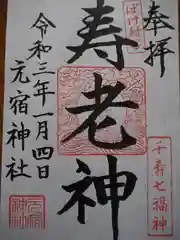 奉拝
ぼけ封
寿老神
千寿七福神
令和三年一月四日
元宿神社